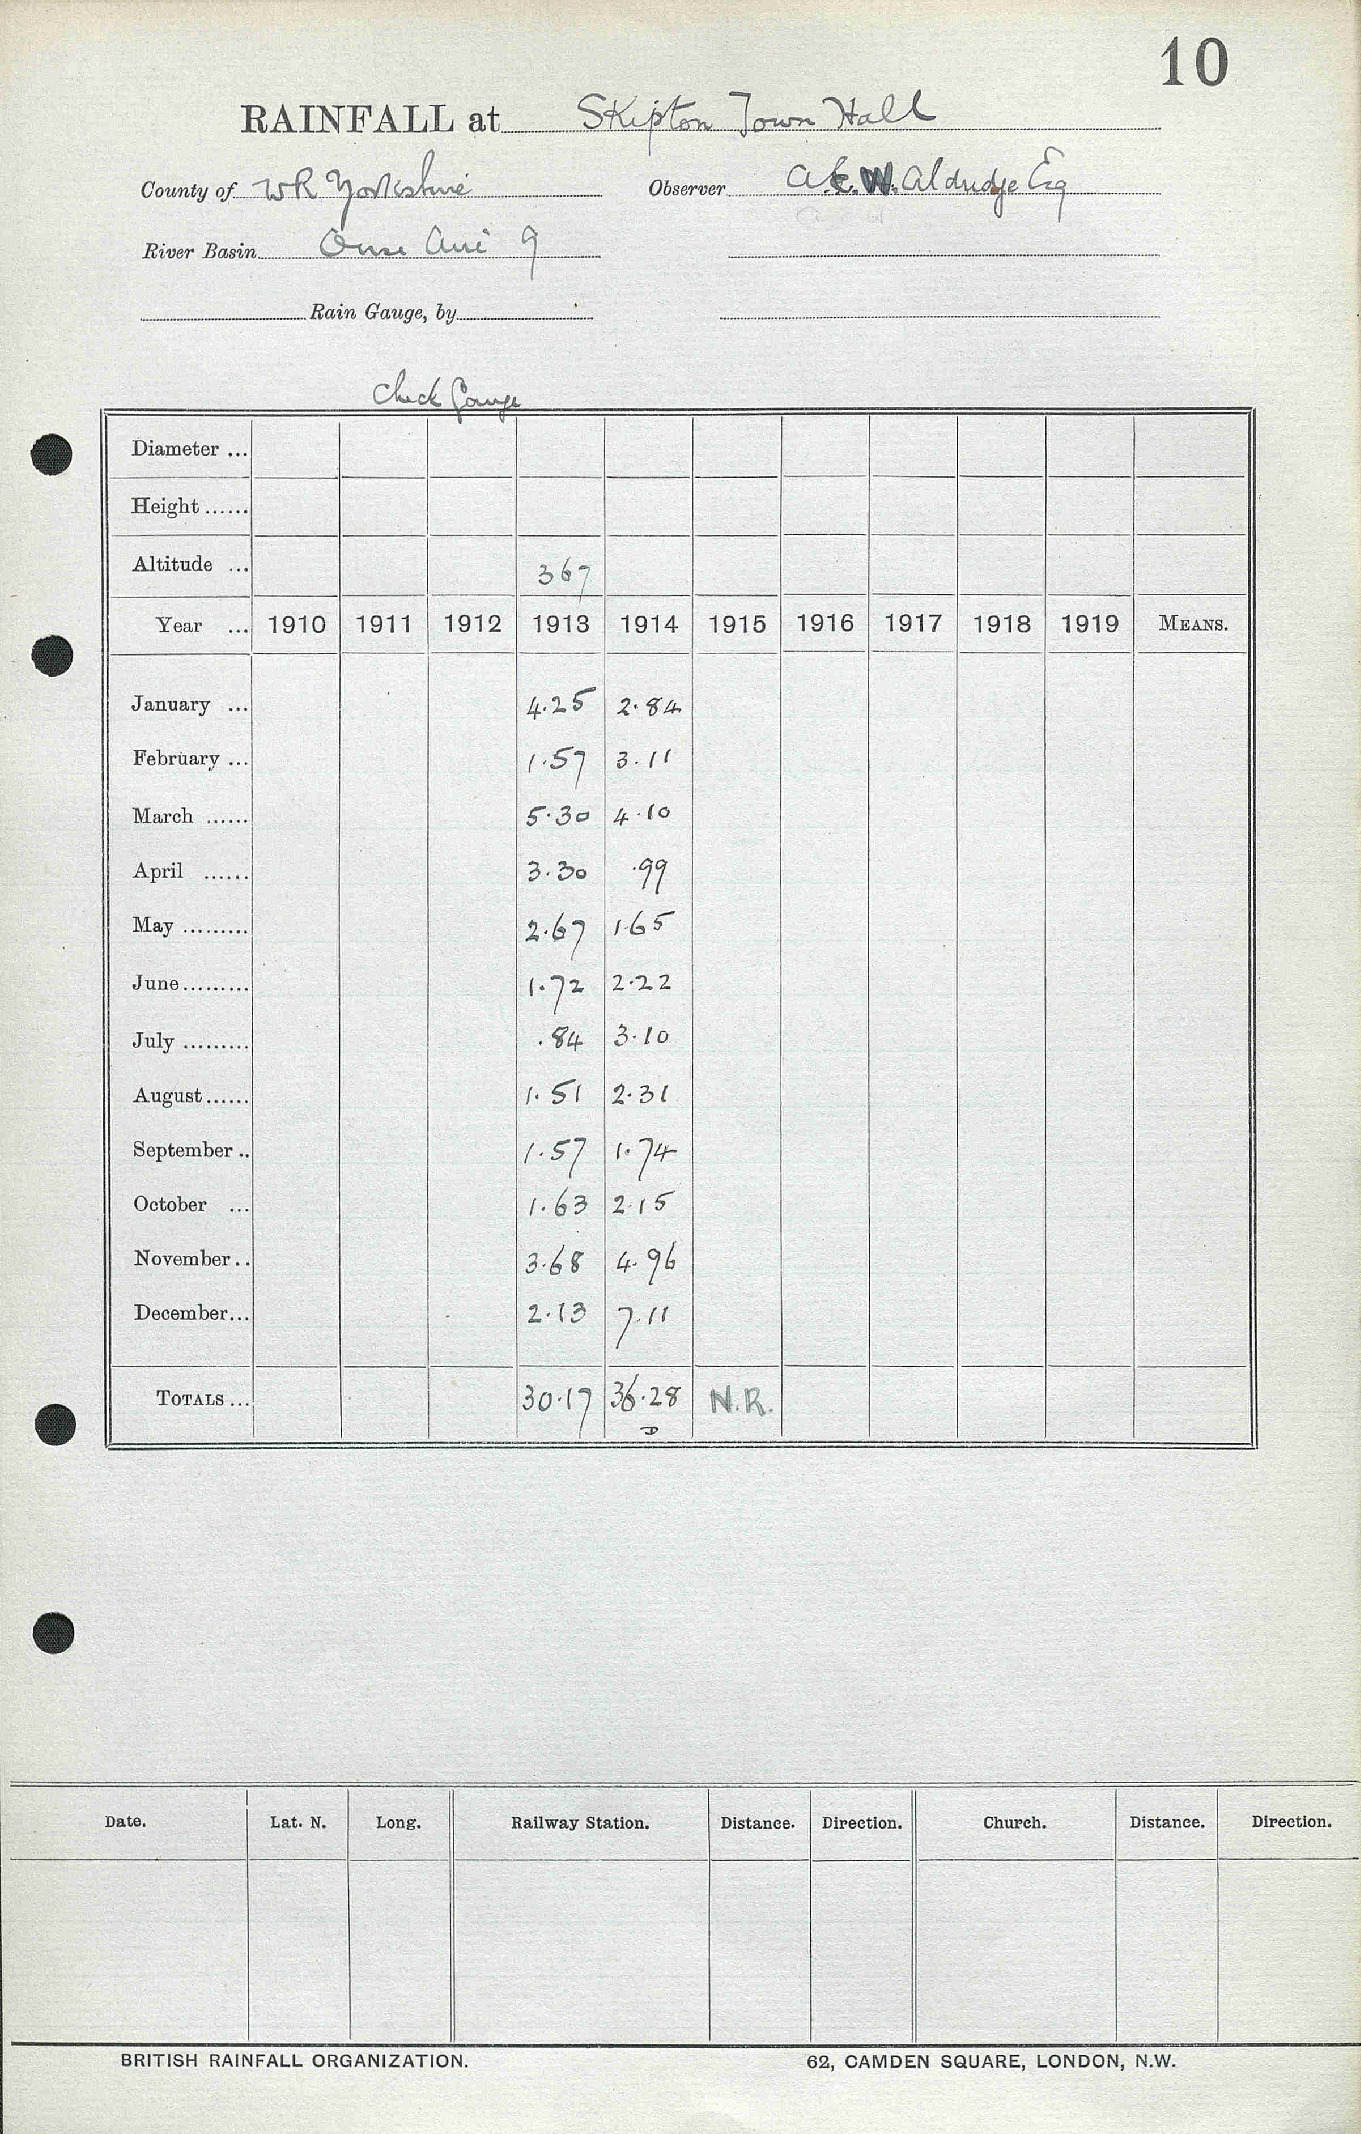 10
RAINFALL at Skipton Town Hall
County of WR Yorkshire Observer A.E.W. Aldridge Esq
River Basin Ouse Aire 9
Rain Gauge, by
Check Gauge
Diameter ...
Height ......
Altitude ... 367
Year ... 1910 1911 1912 1913 1914 1915 1916 1917 1918 1919 MEANS.
January ... 4.25 2.84
February ... 1.57 3.11
March ...... 5.30 4.10
April ...... 3.30 .99
May ......... 2.67 1.65
June ......... 1.72 2.22
July ......... .84 3.10
August ...... 1.51 2.31
September .. 1.57 1.74
October ... 1.63 2.15
November .. 3.68 4.96
December ... 2.13 7.11
TOTALS ... 30.17 36.28 N.R.
Date. Lat. N. Long. Railway Station. Distance. Direction. Church. Distance. Direction.
BRITISH RAINFALL ORGANIZATION. 62, CAMDEN SQUARE, LONDON, N.W.